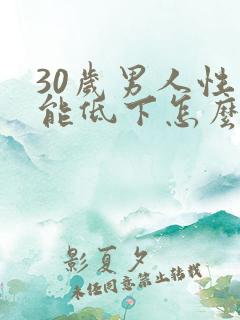 30歲男人性
能低下怎麼
影夏夕
未经同意禁止转载